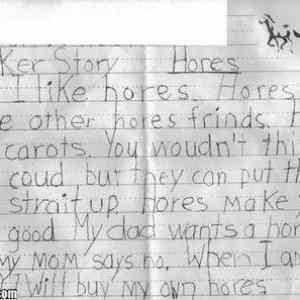 ker Story Hores
I like hores. Hores
e other hores frinds. H
carots. You woudn't thi
coud but they can put th
strait up. Hores make
good My dad wants a hor
my mom says no. When I am
I Will buy my own hores